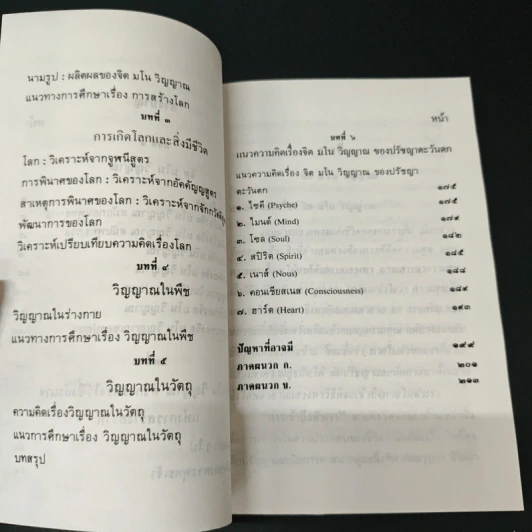 นามรูป : ผลิตผลของจิต มโน วิญญาณ
แนวทางการศึกษาเรื่อง การสร้างโลก
บทที่ ๓
การเกิดโลกและสิ่งมีชีวิต
โลก : วิเคราะห์จากจูฬนีสูตร
การพินาศของโลก : วิเคราะห์จากอัคคัญญสูตร
สาเหตุการพินาศของโลก : วิเคราะห์จากจักกวัตติ
พัฒนาการของโลก
วิเคราะห์เปรียบเทียบความคิดเรื่องโลก
บทที่ ๔
วิญญาณในพืช
วิญญาณในร่างกาย
แนวทางการศึกษาเรื่อง วิญญาณในพืช
บทที่ ๕
วิญญาณในวัตถุ
ความคิดเรื่องวิญญาณในวัตถุ
แนวการศึกษาเรื่อง วิญญาณในวัตถุ
บทสรุป
หน้า
บทที่ ๖
แนวความคิดเรื่องจิต มโน วิญญาณ ของปรัชญาตะวันตก
แนวความคิดเรื่อง จิต มโน วิญญาณ ของปรัชญา
ตะวันตก ๑๗๕
๑. ไซคี (Psyche) ๑๗๕
๒. ไมนด์ (Mind) ๑๗๙
๓. โซล (Soul) ๑๘๒
๔. สปิริต (Spirit) ๑๘๕
๕. เนาส์ (Nous) ๑๘๘
๖. คอนเชียสเนส (Consciousness) ๑๘๙
๗. ฮาร์ต (Heart) ๑๙๓
ปัญหาที่อาจมี ๑๙๙
ภาคผนวก ก. ๒๐๑
ภาคผนวก ข. ๒๑๓